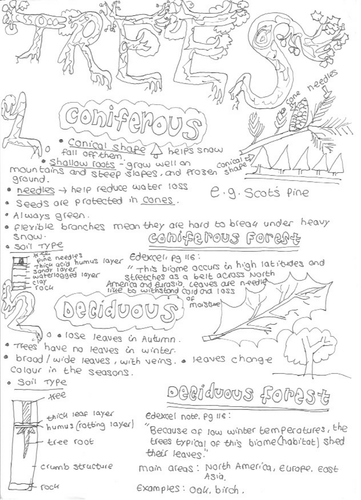 TREES
needles
pine cone
Coniferous
• Conical shape △ helps snow
fall off them.
• Shallow roots - grow well on
mountains and steep slopes, and frozen
ground.
conical shape
• needles → help reduce water loss
e.g. Scots Pine
• Seeds are protected in cones.
• Always green.
• flexible branches mean they are hard to break under heavy
snow.
• Soil Type
tree
pine needles
thick acid humus layer
sandy layer
waterlogged layer
clay
rock
Coniferous Forest
Edexcel: pg 116:
"This biome occurs in high latitudes and
stretches as a belt across North
America and Eurasia. Leaves are needle
like to withstand cold and loss
of
moisture"
Deciduous
• lose leaves in Autumn.
• Trees have no leaves in winter.
• broad / wide leaves, with veins.
• leaves change
colour in the seasons.
• Soil Type
tree
thick leaf layer
humus (rotting layer)
tree root
crumb structure
rock
Deciduous Forest
Edexcel note. pg 116:
"Because of low winter temperatures, the
trees typical of this biome (habitat) shed
their leaves."
main areas: North America, Europe. east
Asia.
Examples: Oak. birch.